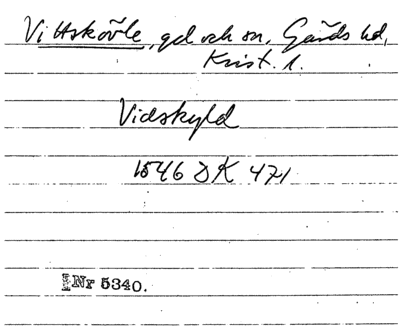 Vittskövle, gd och sn, Gärds hd,
Krist. l.
Vidskyld
1546 DK 471
Nr 5340.